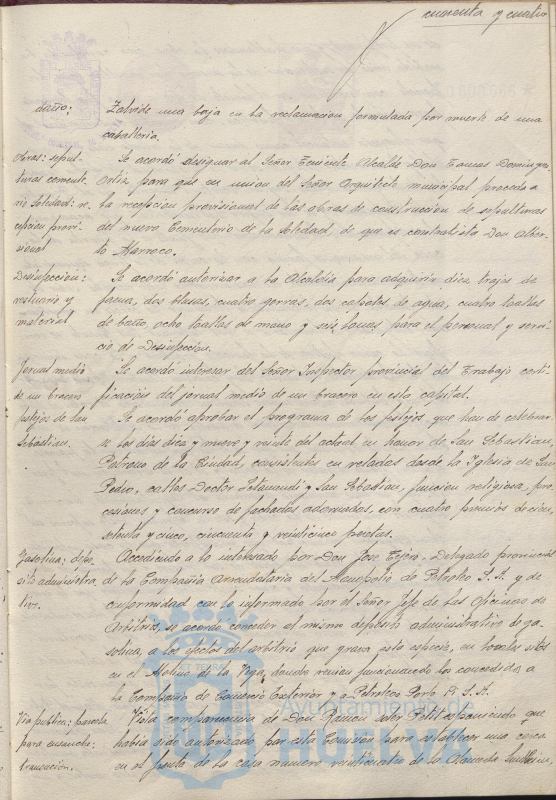 cuarenta y cuatro
daño:
Zalvide una baja en la reclamacion formulada por muerte de una
caballeria.
Obras: sepul-
turas cemente-
rio Soledad: re-
cepcion provi-
sional
Se acordó designar al Señor Teniente Alcalde Don Tomas Dominguez
Ortiz para que en union del Señor Arquitecto municipal proceda a
la recepcion provisional de las obras de construccion de sepulturas
del nuevo Cementerio de la Soledad de que es contratista Don Alber-
to Marroco.
Desinfeccion:
vestuario y
material
Se acordó autorizar a la Alcaldia para adquirir diez trajes de
faena, dos blusas, cuatro gorras, dos capotes de agua, cuatro toallas
de baño, ocho toallas de mano y seis para el personal y servi-
cio de Desinfeccion.
Jornal medio
de un bracero
Se acordó interesar del Señor Inspector provincial del Trabajo certi-
ficacion del jornal medio de un bracero en esta capital.
festejos de San
Sebastian.
Se acordó aprobar el programa de los festejos que han de celebrar-
se los dias diez y nueve y veinte del actual en honor de San Sebastian,
Patrono de la Ciudad, consistentes en veladas desde la Iglesia de San
Pedro, calles Doctor y San Sebastian, funcion religiosa, pro-
cesiones y concurso de fachadas adornadas, con cuatro premios de cien,
setenta y cinco, cincuenta y veinticinco pesetas.
Gasolina: depo-
sito administra-
tivo.
Accediendo a lo interesado por Don Jose Tejero, Delegado provincial
de la Compañia Arrendataria del Monopolio de Petroleo S.A. y de
conformidad con lo informado por el Señor Jefe de las Oficinas de
Arbitrios, se acordó conceder al mismo deposito administrativo de ga-
solina, a los efectos del arbitrio que grava esta especie, en locales sitos
en el Molino de la Vega, donde venian funcionando los concedidos a
la Compañia de Comercio Exterior y a Petroleos Porto Pi S.A.
Via publica: parcela
para ensanche:
Vista comparecencia de Don Ramon exponiendo que
habia sido autorizado por esta Comision para establecer una cerca
en el frente de la casa numero veinticuatro de la Alameda Sundheim,
Ayuntamiento de
HUELVA